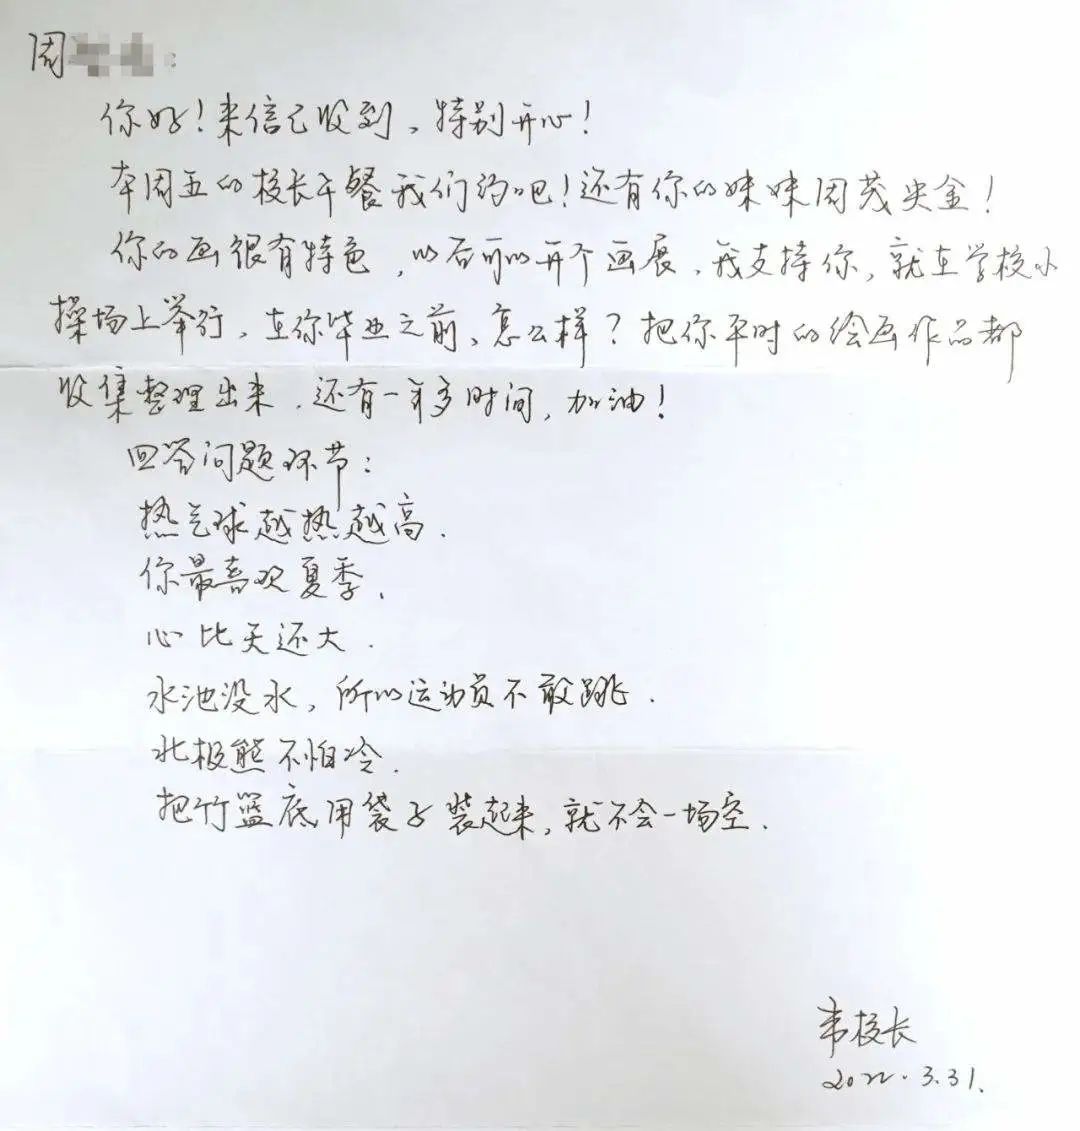 周
你好！来信已收到，特别开心！
本周五的校长午餐我们约吧！还有你的妹妹周茂尖金！
你的画很有特色，以后可以开个画展，我支持你，就在学校小
操场上举行，在你毕业之前，怎么样？把你平时的绘画作品都
收集整理出来，还有一年多时间，加油！
回答问题环节：
热气球越热越高.
你最喜欢夏季.
心比天还大.
水池没水，所以运动员不敢跳.
北极熊不怕冷.
把竹篮底用袋子装起来，就不会一场空.
韦校长
2022.3.31.